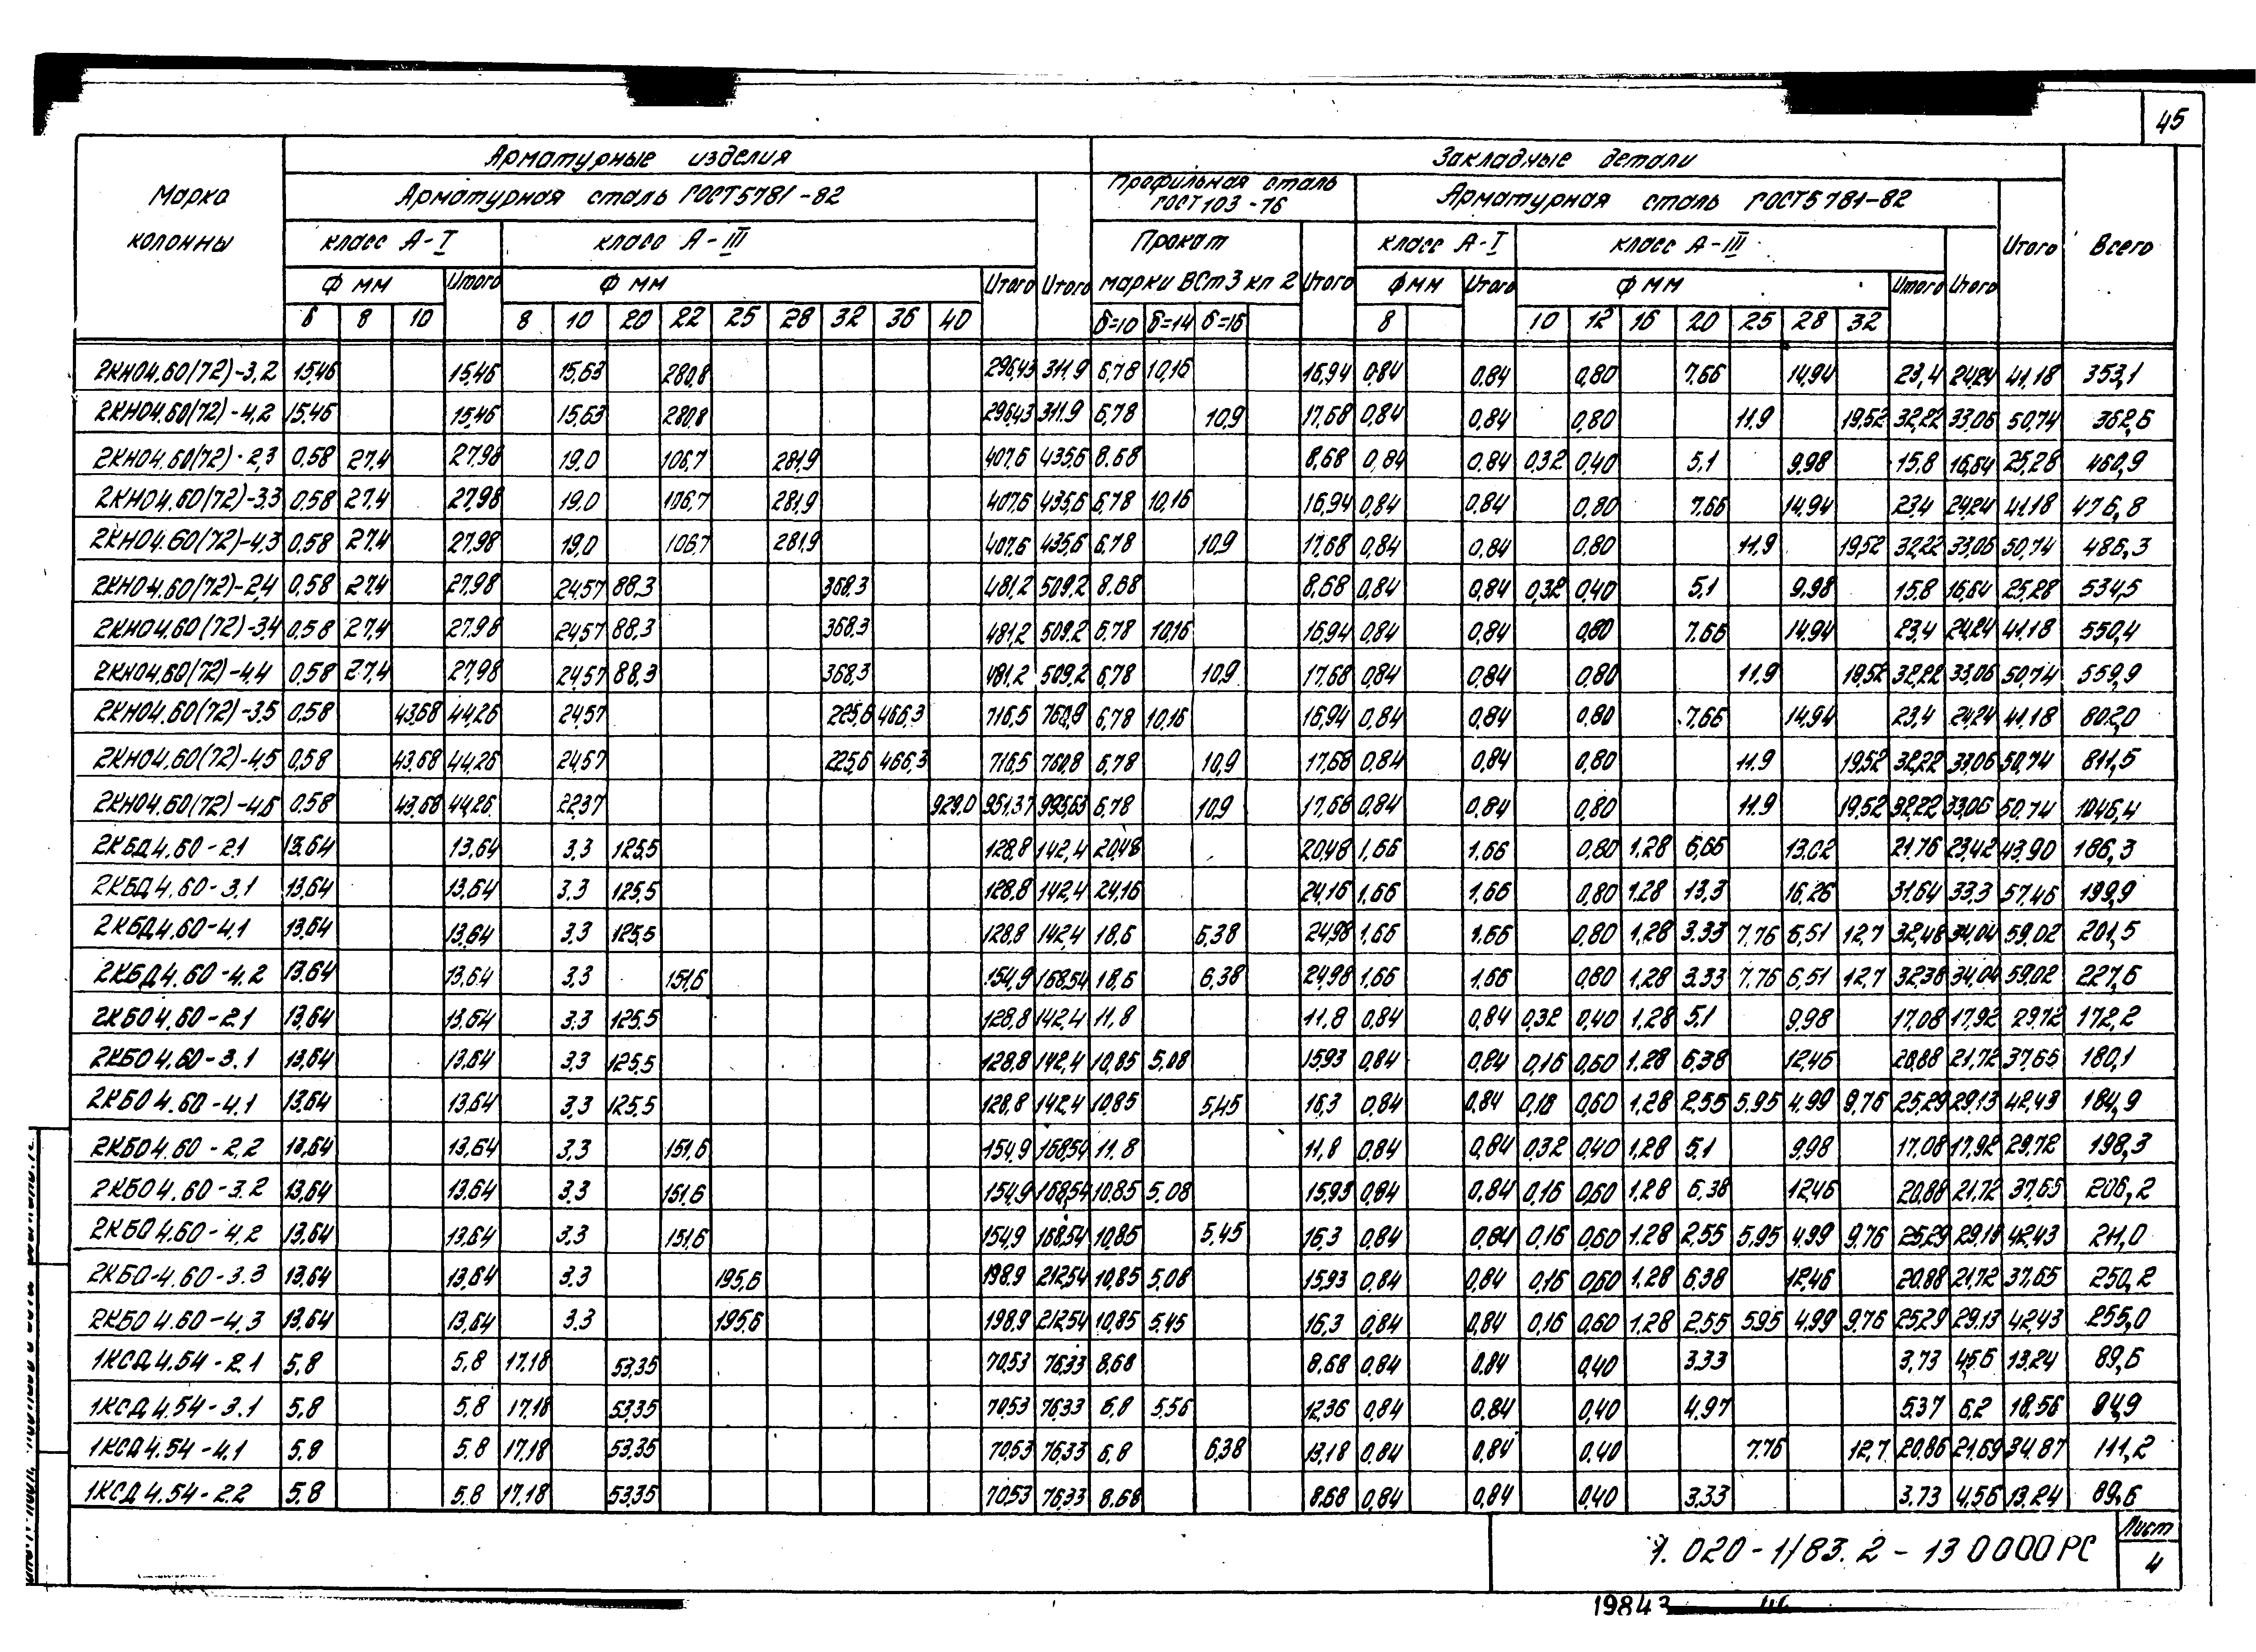 45
Марка колонны
Арматурные изделия
Закладные детали
Всего
Арматурная сталь ГОСТ 5781-82
Итого
Профильная сталь ГОСТ 103-76
Арматурная сталь ГОСТ 5781-82
Итого
класс А-I
класс А-III
Прокат марки ВСт3 кп 2
Итого
класс А-I
класс А-III
Итого
Ф мм Итого Ф мм Итого Ф мм Итого Ф мм Итого
6 8 10 8 10 20 22 25 28 32 36 40 б=10 б=14 б=16 8 10 12 16 20 25 28 32
2КНО4.60(72)-3,2 15,46 15,46 15,63 280,8 296,43 311.9 6,78 10,16 16,94 0,84 0,84 0,80 7.66 14,94 23,4 24,24 41.18 353,1
2КНО4.60(72)-4,2 15,46 15,46 15,63 280,8 296,43 311.9 6,78 10,9 17,68 0,84 0,84 0,80 11.9 19,52 32,22 33,06 50,74 362,6
2КНО4.60(72)-2,3 0,58 27,4 27,98 19.0 106,7 281,9 407,6 435,6 8.68 8,68 0,84 0,84 0,32 0,40 5,1 9,98 15,8 16,64 25,28 460,9
2КНО4.60(72)-3.3 0,58 27,4 27,98 19.0 106,7 281,9 407,6 435,6 6,78 10,16 16,94 0,84 0,84 0,80 7.66 14,94 23,4 24,24 41.18 476,8
2КНО4.60(72)-4,3 0,58 27,4 27,98 19,0 106,7 281,9 407,6 435,6 6,78 10,9 17,68 0,84 0,84 0,80 11.9 19,52 32,22 33,06 50,74 486,3
2КНО4.60(72)-2,4 0,58 27,4 27,98 24,57 88,3 368,3 481,2 509,2 8.68 8,68 0,84 0,84 0,32 0,40 5,1 9,98 15,8 16,64 25,28 534,5
2КНО4.60(72)-3,4 0,58 27,4 27,98 24,57 88,3 368,3 481,2 509,2 6,78 10,16 16,94 0,84 0,84 0,80 7.66 14,94 23,4 24,24 41.18 550,4
2КНО4.60(72)-4.4 0,58 27,4 27,98 24,57 88,3 368,3 481,2 509,2 6,78 10,9 17,68 0,84 0,84 0,80 11.9 19,52 32,22 33,06 50,74 559,9
2КНО4.60(72)-3.5 0,58 43,68 44,26 24,57 225,6 466,3 716,5 760,8 6,78 10,16 16,94 0,84 0,84 0,80 7,66 14,94 23,4 24,24 41.18 802,0
2КНО4.60(72)-4,5 0,58 43,68 44,26 24,57 225,6 466,3 716,5 760,8 6,78 10,9 17,68 0,84 0,84 0,80 11.9 19,52 32,22 33,06 50,74 811,5
2КНО4.60(72)-4.6 0.58 43,68 44,26 22,37 929.0 951,37 995,63 6,78 10,9 17,68 0,84 0,84 0,80 11.9 19,52 32,22 33,06 50.74 1046,4
2КБД4.60-2.1 13,64 13,64 3,3 125,5 128,8 142,4 20,48 20,48 1,66 1.66 0,80 1,28 6,66 13,02 21.76 23,42 43,90 186,3
2КБД4.60-3.1 13,64 13,64 3,3 125,5 128,8 142,4 24,16 24,16 1,66 1.66 0,80 1,28 13,3 16,26 31,64 33,3 57,46 199,9
2КБД4.60-4.1 13,64 13,64 3,3 125,5 128,8 142,4 18,6 6,38 24,98 1,66 1.66 0,80 1,28 3.33 7,76 6,51 12,7 32,48 34,04 59.02 201,5
2КБД4.60-4.2 13,64 13,64 3,3 151,6 154,9 168,54 18,6 6,38 24,98 1,66 1,66 0,80 1,28 3.33 7,76 6,51 12,7 32,38 34,04 59,02 227,6
2КБО4.60-2.1 13,64 13,64 3.3 125.5 128,8 142,4 11,8 11.8 0,84 0,84 0,32 0,40 1,28 5.1 9,98 17,08 17,92 29,72 172,2
2КБО4.60-3.1 13,64 13,64 3,3 125,5 128,8 142,4 10,85 5,08 15,93 0,84 0,84 0,16 0,60 1,28 6,38 12,46 20,88 21,72 37,65 180,1
2КБО4.60-4.1 13,64 13,64 3,3 125,5 128,8 142,4 10,85 5,45 16,3 0,84 0,84 0,16 0,60 1,28 2,55 5,95 4,99 9,76 25,29 29,13 42,43 184,9
2КБО4.60-2,2 13,64 13,64 3,3 151,6 154,9 168,54 11.8 11,8 0,84 0,84 0,32 0,40 1,28 5,1 9,98 17,08 17,92 29,72 198,3
2КБО4.60-3.2 13,64 13,64 3,3 151,6 154,9 168,54 10,85 5,08 15,93 0,84 0,84 0,16 0,60 1,28 6,38 12,46 20,88 21,72 37,65 206,2
2КБО4.60-4,2 13,64 13,64 3,3 151,6 154,9 168,54 10,85 5,45 16,3 0,84 0,84 0,16 0,60 1,28 2,55 5,95 4,99 9,76 25,29 29,13 42,43 211,0
2КБО-4.60-3.3 13,64 13,64 3.3 195,6 198,9 212,54 10,85 5,08 15,93 0,84 0,84 0,16 0,60 1,28 6,38 12,46 20,88 21,72 37,65 250,2
2КБО4.60-4,3 13,64 13,64 3.3 195,6 198,9 212,54 10,85 5,45 16,3 0,84 0,84 0,16 0,60 1,28 2,55 5,95 4,99 9,76 25,29 29,13 42,43 255,0
1КСД4.54-2.1 5,8 5,8 17,18 53,35 70,53 76,33 8,68 8,68 0,84 0,84 0,40 3.33 3,73 45,6 13,24 89,6
1КСД4.54-3.1 5,8 5,8 17,18 53,35 70,53 76,33 6,8 5,56 12,36 0,84 0,84 0,40 4,97 5,37 6,2 18,56 94,9
1КСД4.54-4.1 5,8 5,8 17,18 53,35 70,53 76,33 6,8 6,38 13,18 0,84 0,84 0,40 7.76 12,7 20,86 21,69 34,87 111,2
1КСД4.54-2.2 5,8 5,8 17,18 53,35 70,53 76,33 8.68 8,68 0,84 0,84 0,40 3,33 3.73 4,56 13,24 89,6
1.020-1/83.2-13 0000РС
Лист
4
19843